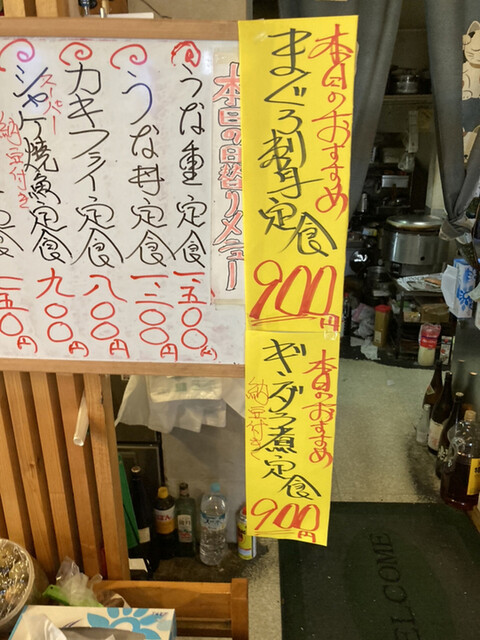 本日のおすすめ
まぐろ刺身定食
900円
本日のおすすめ
ギンダラ煮定食
納豆付き
900円
本日の日替りメニュー
うな重定食
一、五〇〇円
うな丼定食
一、三〇〇円
カキフライ定食
八〇〇円
スーパー
シャケ焼魚定食
納豆付き
九〇〇円
定食
五〇円
WELCOME